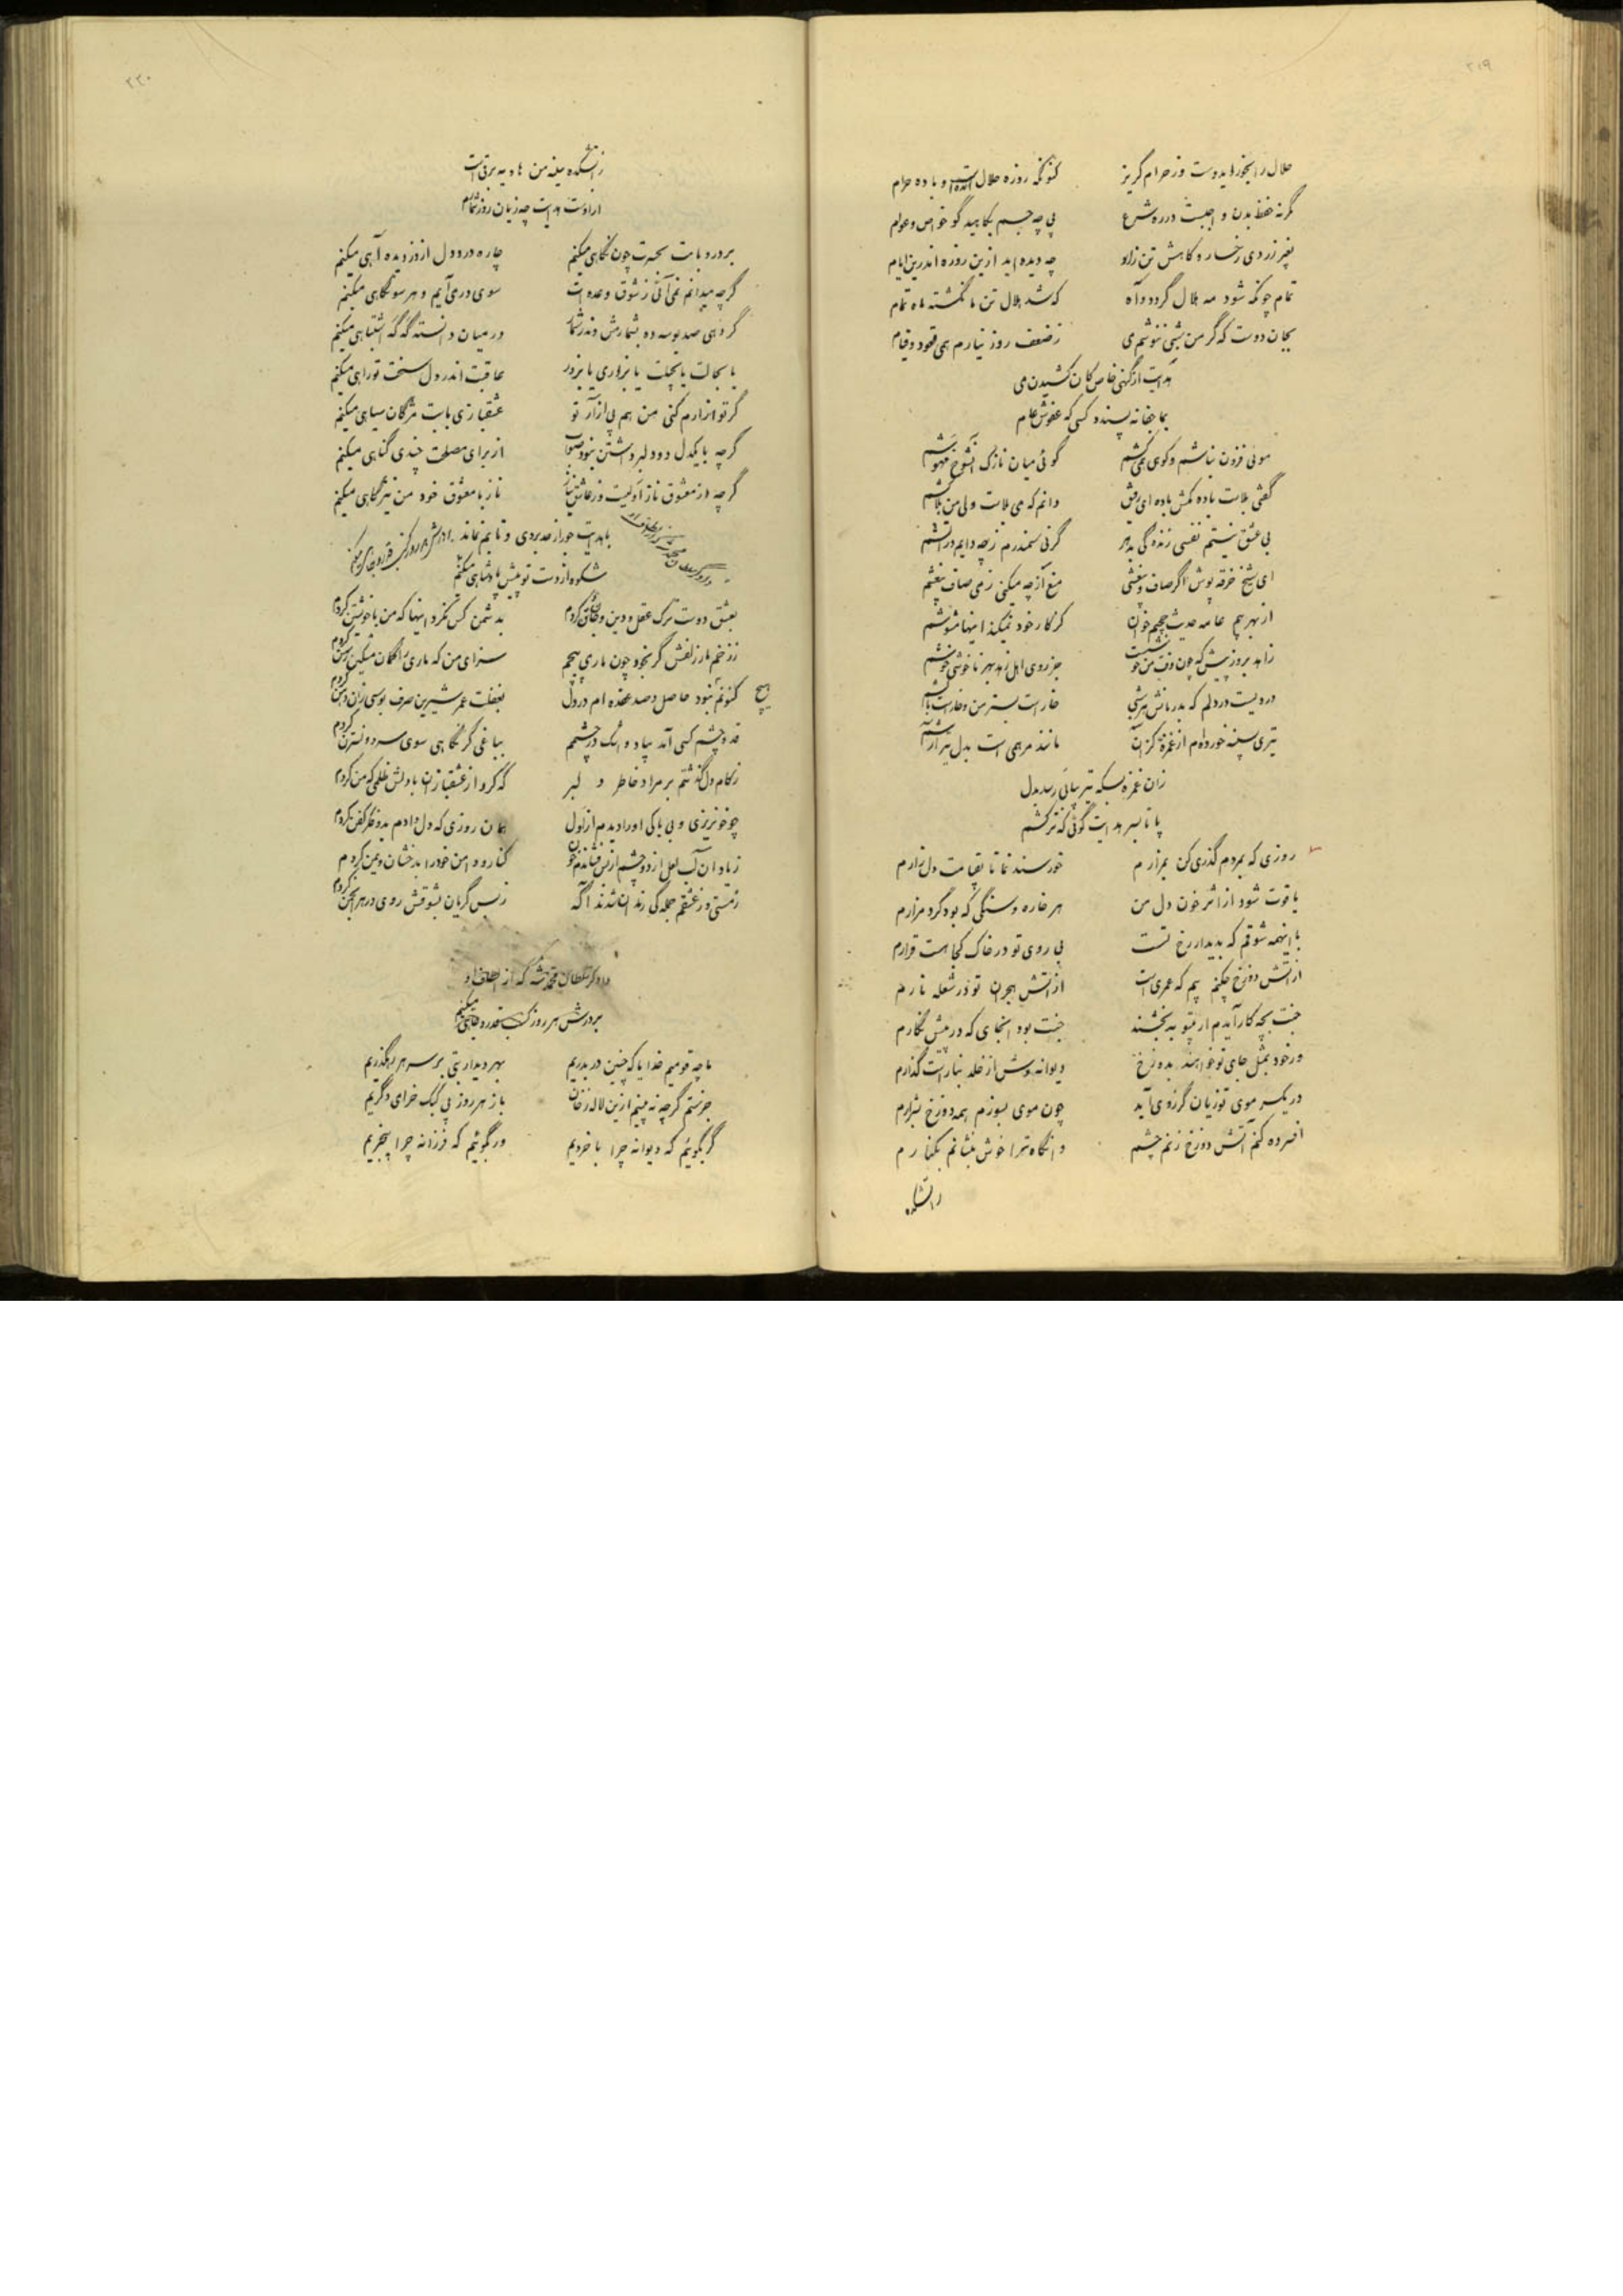 ۲۱۹
حلال را بخور ای دوست وز حرام گریز
کنونکه روزه حلال است و باده حرام
گرنه حفظ بدن واجبست در ره شرع
پی چه جسم بکاهید گو خواص و عوام
بغیر زردی رخسار و کاهش تن زار
چه دیده اید ازین روزه اندرین ایام
تمام چونکه شود مه هلال گردد و آه
که شد هلال تن ما نگشته ماه تمام
بجان دوست که گر من شبی ننوشم می
ز ضعف روز نیارم همی قعود و قیام
هدایت از گنهی خاص کان کشیدن می
بما جفا نه پسندد کسی که عفوش عام
موئی فزون نباشم و کوهی همی کشم
گوئی میان نازک آنشوخ مهوشم
گفتی بلاست باده مکش باده ای رفیق
دانم که می بلاست ولی من بلا کشم
بی عشق نیستم نفسی زندگی پذیر
گرنی سمندرم ز چه دایم در آتشم
ای شیخ خرقه پوش اگر صاف و بیغشی
منع از چه میکنی ز می صاف بیغشم
از بهر چیم عامه حدیث
کز کار خود نمیکند اینها مشوشم
زاهد
جز روی اهل زهد بهر ناخوشی خوشم
دردیست در دلم که بدرمانش
خار است بستر من و خار است بالشم
تیری بسینه خورده ام از غمزه کز آن
مانند مرهمی است بدل تیر آرشم
زان غمزه بسکه تیر پیاپی رسد بدل
پا تا بسر هدایت گوئی که ترکشم
روزی که بمردم گذری کن بمزارم
خورسند نما تا بقیامت دل زارم
یاقوت شود از اثر خون دل من
هر خاره و سنگی که بود گرد مزارم
با اینهمه شوقم که بدیدار رخ تست
بی روی تو در خاک کجا هست قرارم
از آتش دوزخ چکنم بیم که عمری است
از آتش هجران تو در شعله نارم
جنت بچه کار آیدم ار بیتو ببخشند
جنت بود آنجای که در پیش نگارم
ور خود بمثل جای تو خواهند بدوزخ
دیوانه وش از خلد بنار است گذارم
در یکسر موی تو زیان گر ز وی آید
چون موی بسوزم همه دوزخ بشرارم
افسرده کنم آتش دوزخ ز نم چشم
وانگاه ترا خوش بنشانم بکنارم
زاتشکده
۲۲۰
زاتشکده سینه من هاویه برقی است
از اوست هدایت چه زیان روز شمارم
بر در و بامت بحسرت چون نگاهی میکنم
چاره درد دل از دزدیده آهی میکنم
گرچه میدانم نمی آئی ز شوق وعده ات
سوی در می آیم و هر سو نگاهی میکنم
گر دهی صد بوسه ده بشمارمش وندر شمار
در میان دانسته گه گه اشتباهی میکنم
با بجالت با بچلت یا بزاری یا بزور
عاقبت اندر دل سخت تو راهی میکنم
گر تو ازارم کنی من هم پی آزار تو
عشقبازی با بت مژگان سیاهی میکنم
گرچه با یکدل دو دلبر داشتن نبود صواب
از برای مصلحت چندی گناهی میکنم
گرچه از معشوق ناز اولیست وز عاشق نیاز
ناز با معشوق خود من نیز گاهی میکنم
با هدایت جور از حد بردی و تابم نماند
شکوه از دست تو پیش پادشاهی میکنم
بعشق دوست ترک عقل و دین و جان کردم
بدشمن کس نکرد اینها که من با خویشتن کردم
ز زخم مار زلفش گر نجود چون ماری پیچم
سزای من که بازی
هیچ
کنونم نبود حاصل و صد عقده ام در دل
بغفلت عمر شیرین صرف بوسی زان دهن کردم
قد و چشم کسی آمد بیاد و اشک در چشمم
بباغی گر نگاهی سوی سرو و نسترن کردم
ز کام دل گذشتم بر مراد خاطر دلبر
که کرد از عشقبازان با دلش ظلمی که من کردم
چو خونریزی و بی باکی او را دیدم از اول
همان روزی که دل دادم بدو فکر کفن کردم
ز یاد آن لب لعل از دو چشم از بس فشاندم خون
کنار و دامن خود را بدخشان و یمن کردم
ز مستی وز عشقم جمله گی رندان شدند آگه
ز بس گریان بشوقش روی در هر انجمن کردم
دادگر سلطان محمد شه که از الطاف او
بر درش هر روز کسب قدر و جاهی میکنم
ما چه قومیم خدایا که چنین دربدریم
بهر دیدار بتی بر سر هر رهگذریم
جز ستم گرچه نه بینیم ازین لاله رخان
باز هر روز پی کبک خرامی دگریم
گر بگوئیم که دیوانه چرا با خردیم
ور بگوئیم که فرزانه چرا بیخبریم